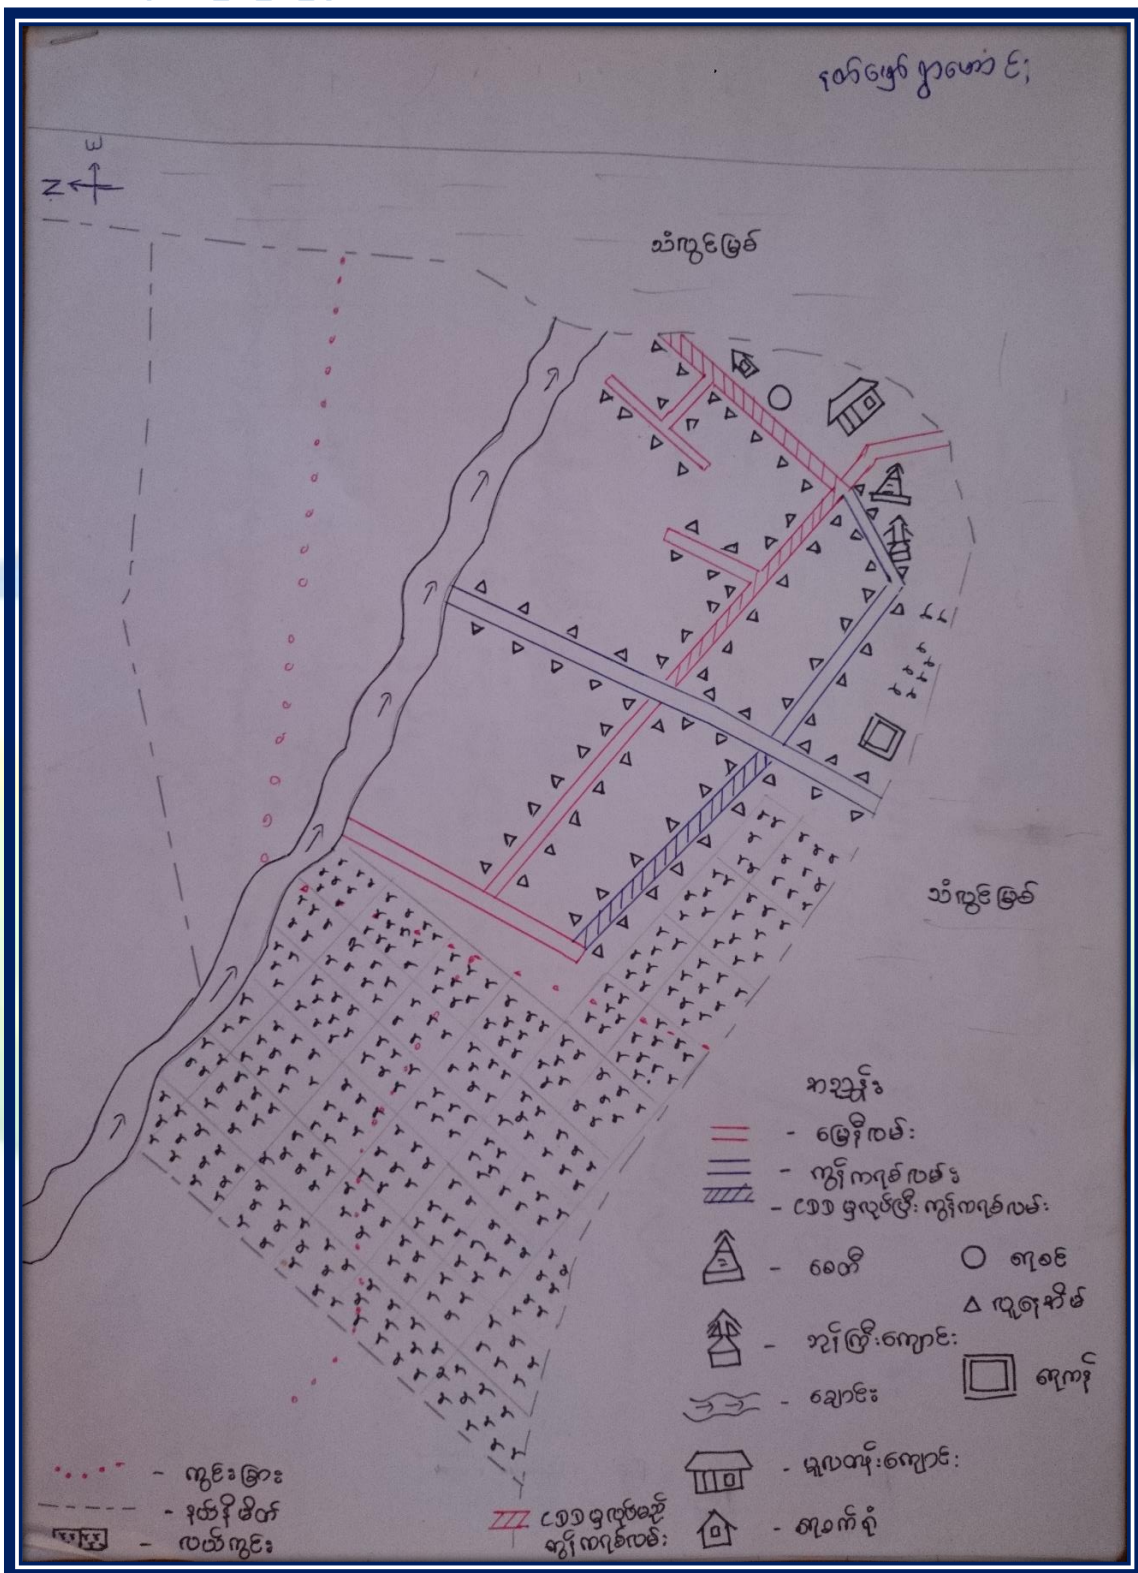 နတ်ဖြော်ရွာဟောင်း
E
N
သံလွင်မြစ်
သံလွင်မြစ်
အညွှန်း
- မြေနီလမ်း
- ကွန်ကရစ်လမ်း
- CDD မှလုပ်ပြီးကွန်ကရစ်လမ်း
- စေတီ
ရေစင်
လူနေအိမ်
- ဘုန်းကြီးကျောင်း
ရေကန်
- ချောင်း
- မူလတန်းကျောင်း
- ကွင်းခြား
- နယ်နိမိတ်
- လယ်ကွင်း
CDD မှလုပ်မည့်
ကွန်ကရစ်လမ်း
- ရေစက်ရုံ